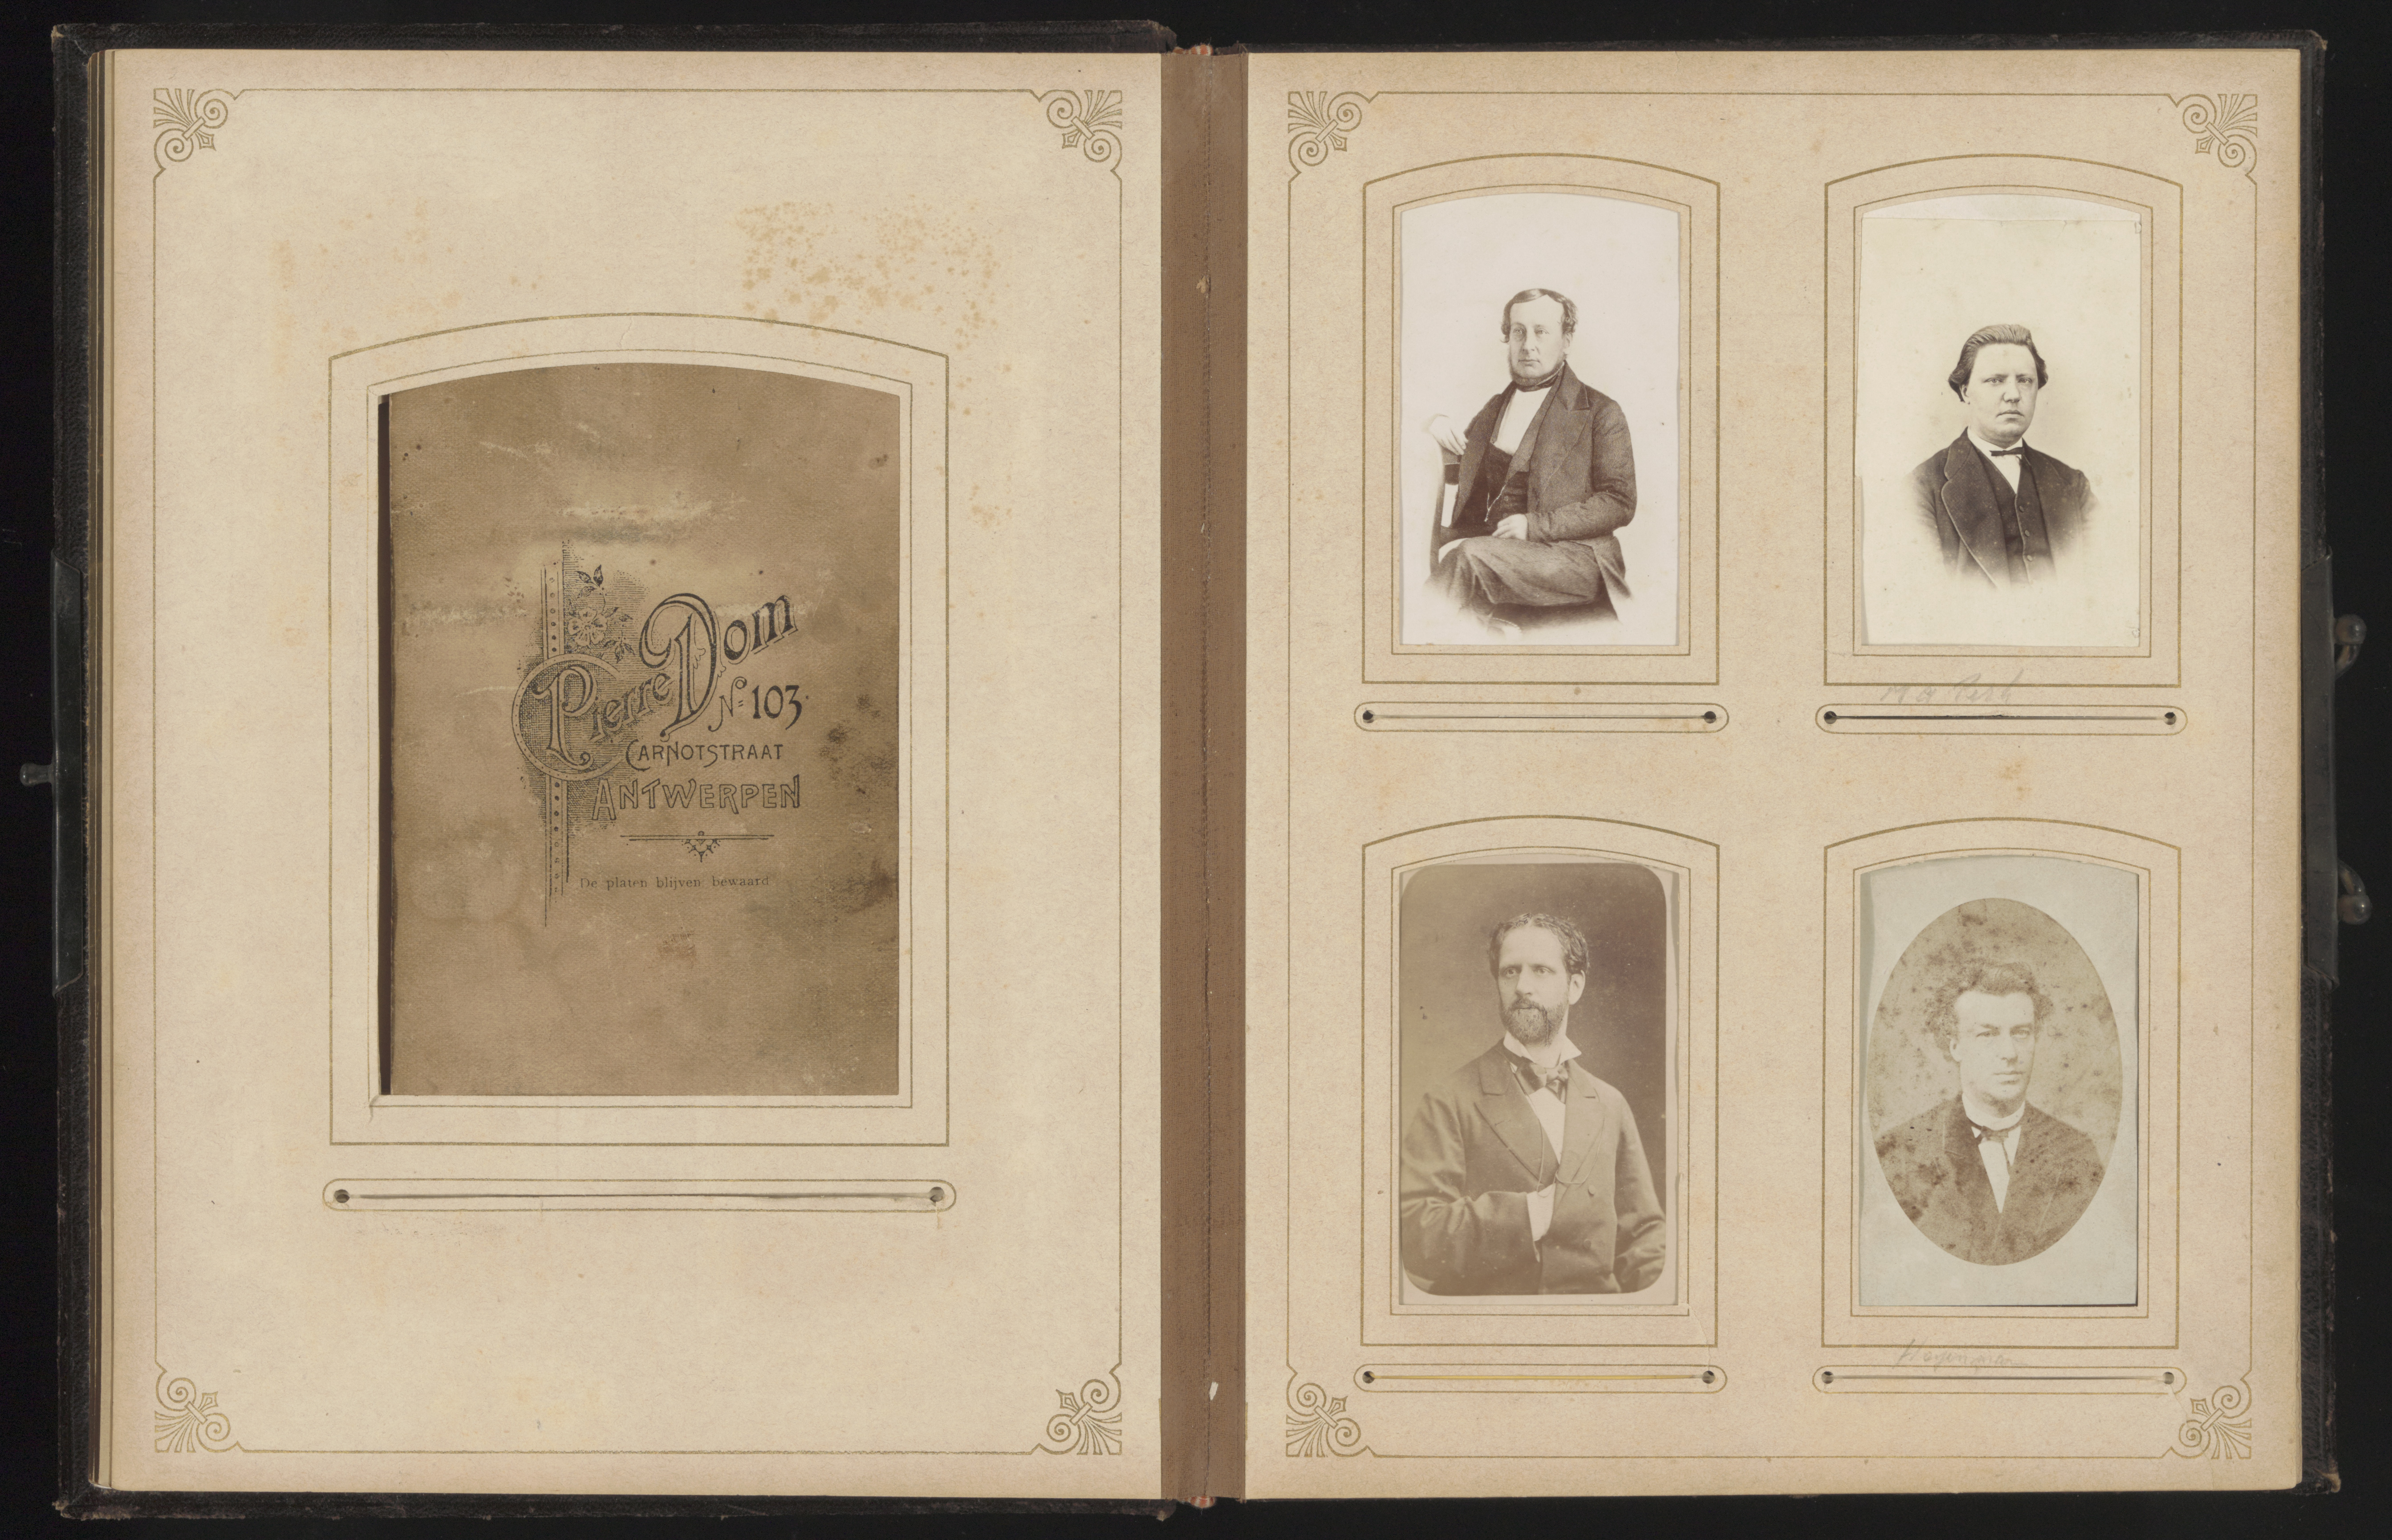 Pierre Dom
Nº 103.
CARNOTSTRAAT
ANTWERPEN
De platen blijven bewaard